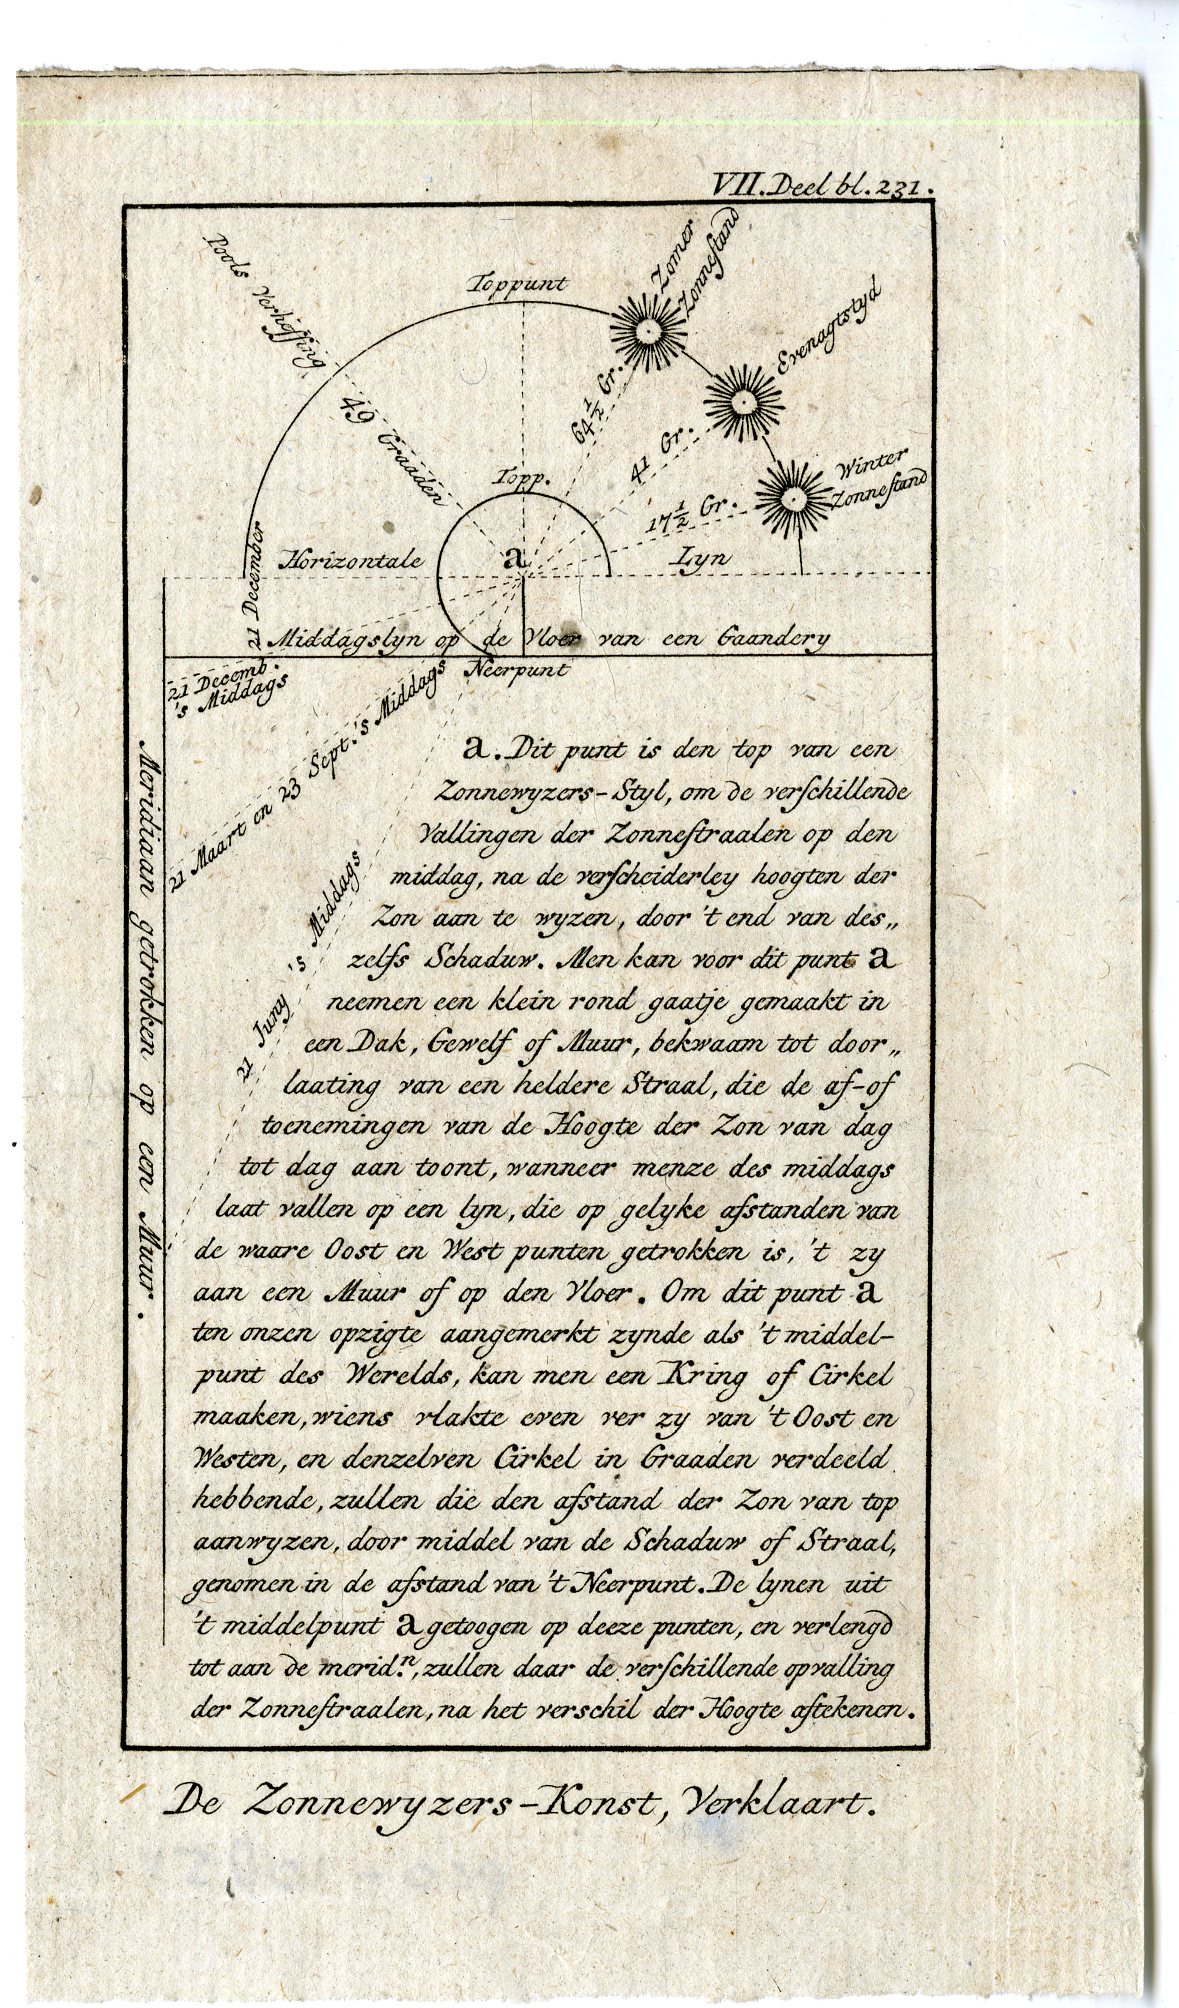 VII. Deel bl. 231.
Pools Verheffing
49 Graaden
Toppunt
Zomer
Zonnestand
Evenagtstyd
Winter
Zonnestand
64 1/2 Gr.
41 Gr.
17 1/2 Gr.
Topp.
a
Horizontale Lyn
21 December
Middagslyn op de Vloer van een Gaandery
Neerpunt
21 Decemb.
's Middags
21 Maart en 23 Sept. 's Middags
21 Juny 's Middags
Meridiaan getrokken op een Muur.
a. Dit punt is den top van een
Zonnewyzers-Styl, om de verschillende
Vallingen der Zonnestraalen op den
middag, na de verscheiderley hoogten der
Zon aan te wyzen, door 't end van des„
zelfs Schaduw. Men kan voor dit punt a
neemen een klein rond gaatje gemaakt in
een Dak, Gewelf of Muur, bekwaam tot door„
laating van een heldere Straal, die de af-of
toenemingen van de Hoogte der Zon van dag
tot dag aan toont, wanneer menze des middags
laat vallen op een lyn, die op gelyke afstanden van
de waare Oost en West punten getrokken is, 't zy
aan een Muur of op den Vloer. Om dit punt a
ten onzen opzigte aangemerkt zynde als 't middel-
punt des Werelds, kan men een Kring of Cirkel
maaken, wiens vlakte even ver zy van 't Oost en
Westen, en denzelven Cirkel in Graaden verdeeld
hebbende, zullen die den afstand der Zon van top
aanwyzen, door middel van de Schaduw of Straal,
genomen in de afstand van 't Neerpunt. De lynen uit
't middelpunt a getoogen op deeze punten, en verlengd
tot aan de merid.n, zullen daar de verschillende opvalling
der Zonnestraalen, na het verschil der Hoogte aftekenen.
De Zonnewyzers-Konst, Verklaart.